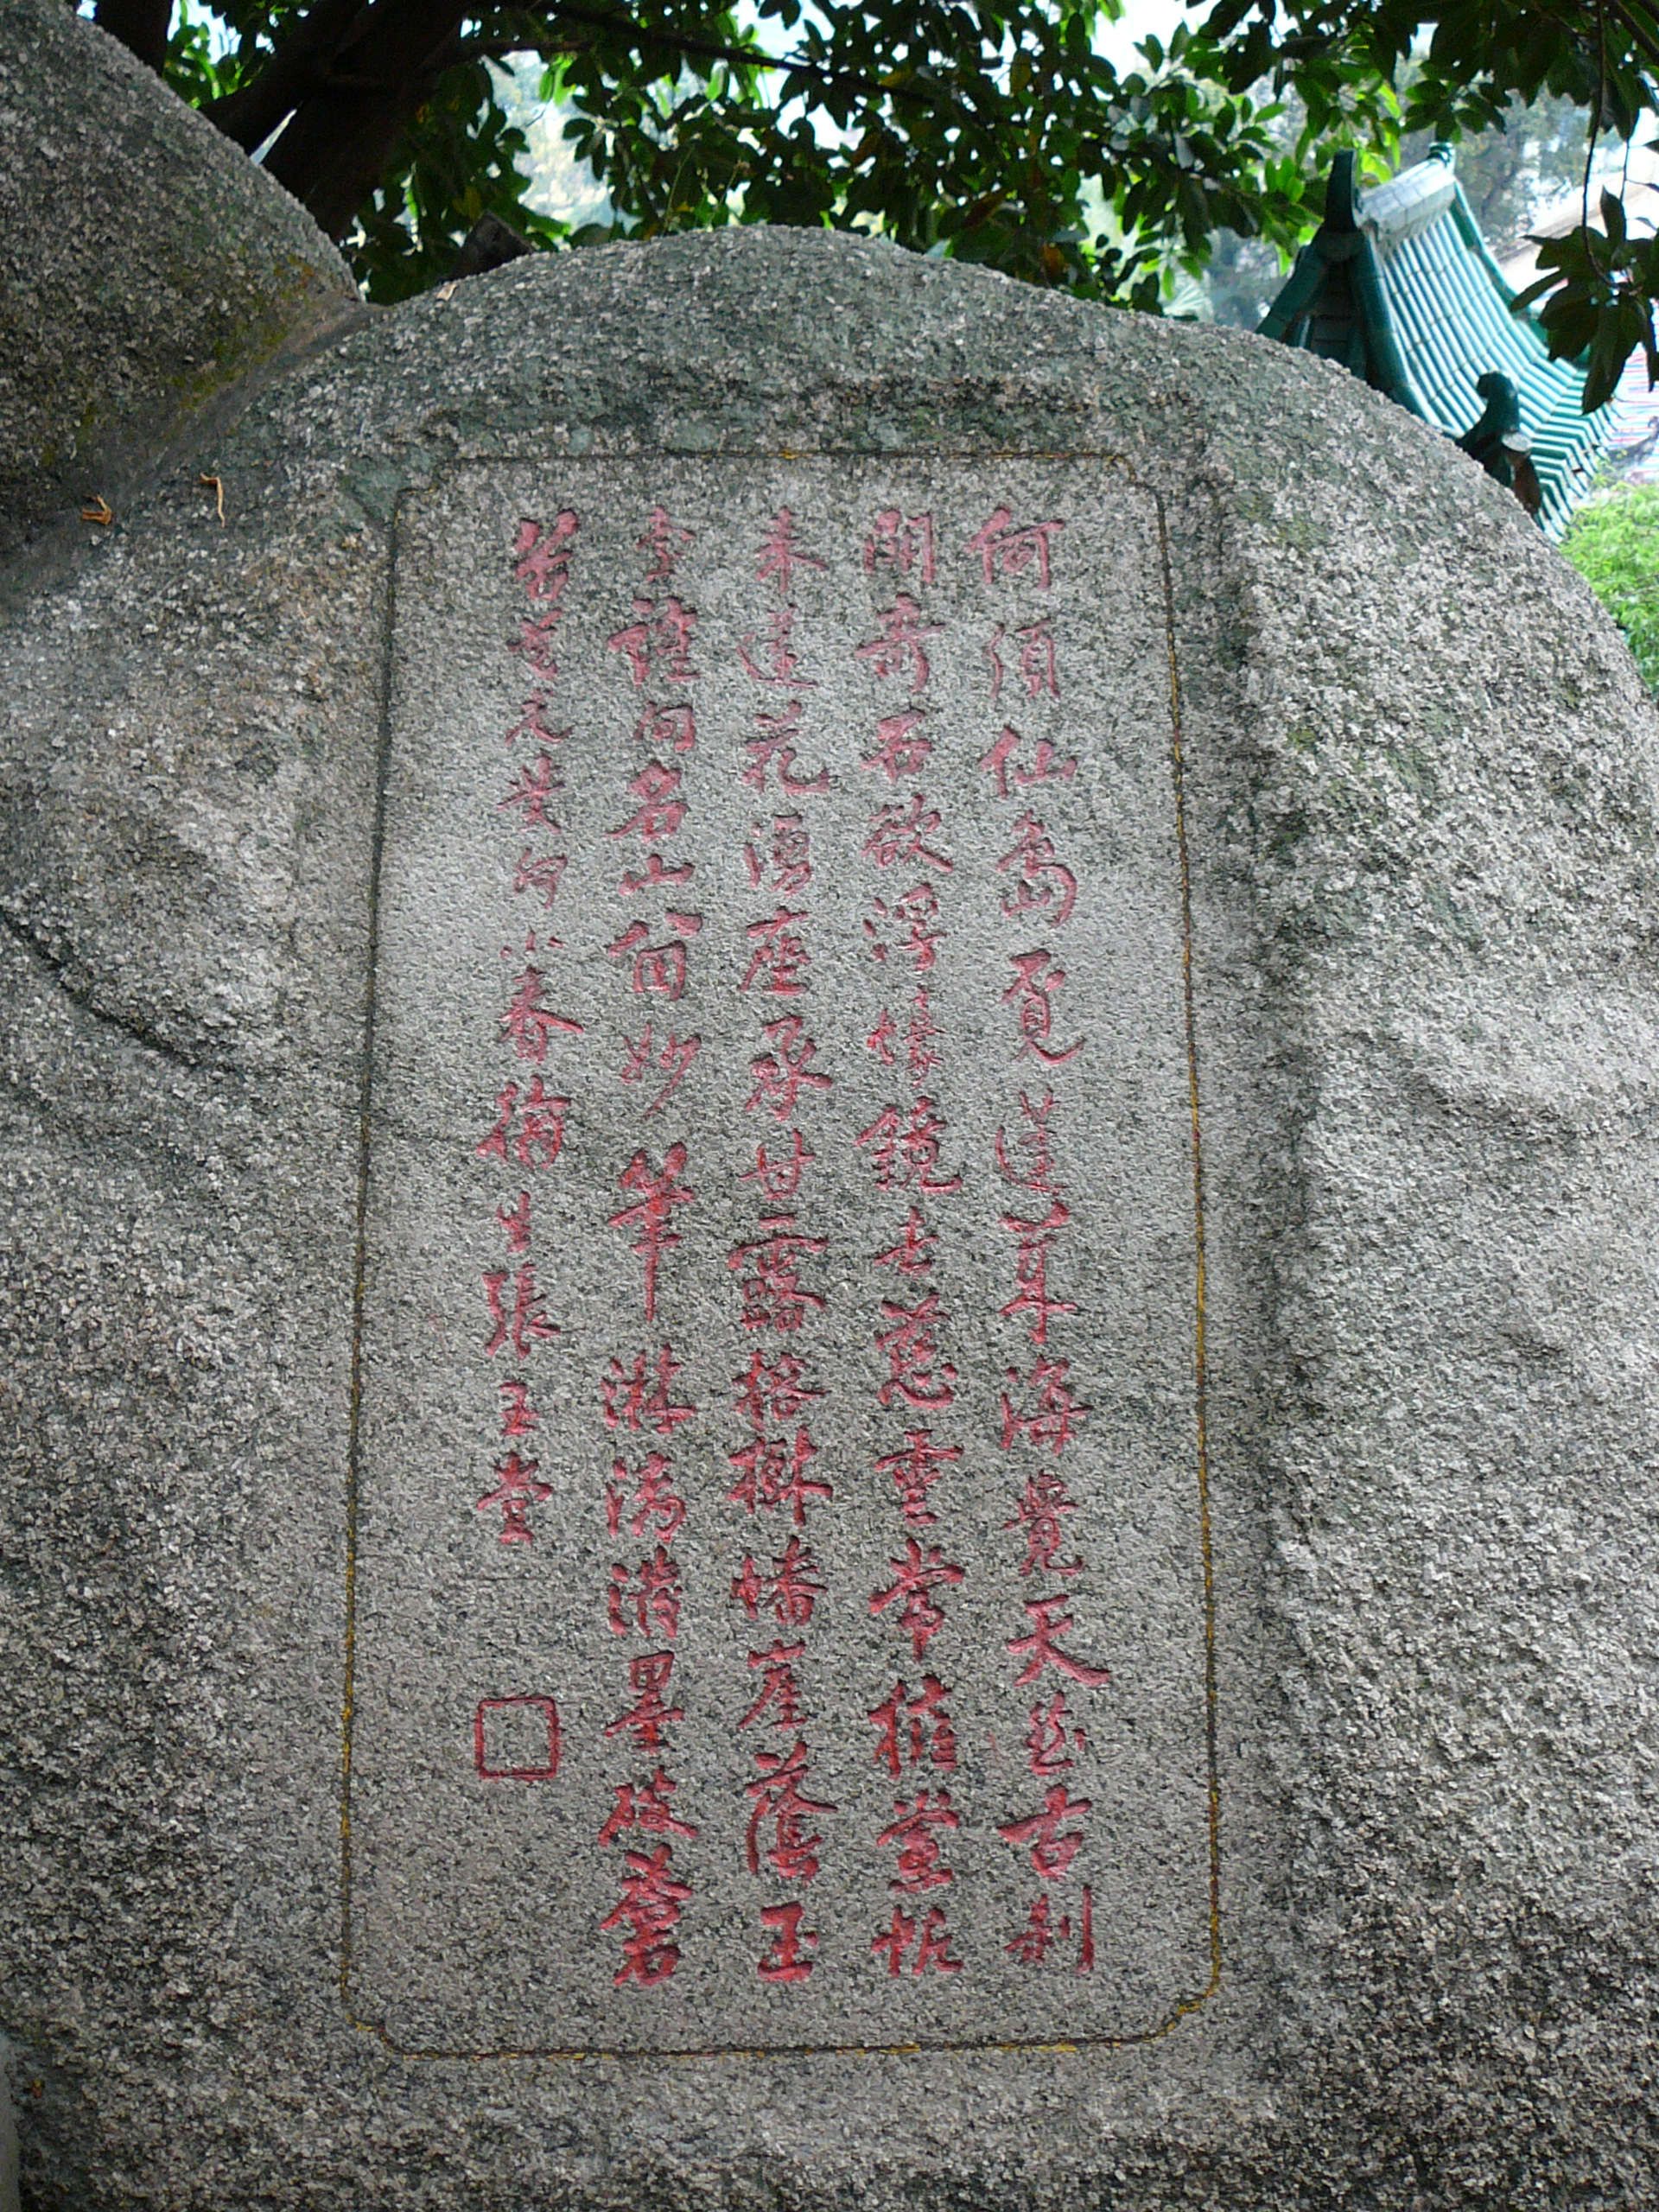 何須仙島覓蓬萊海覺天然古刹
開奇石欲浮濠鏡去慈雲常擁帆
來蓮花湧座承甘露榕樹蟠崖蔭玉
臺誰向名山留妙筆淋漓潑墨破蒼
苔道光癸卯小春翰生張玉堂